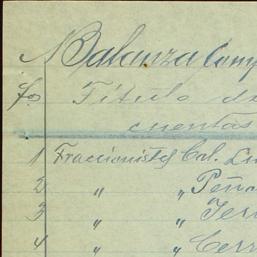 Balanza Comp
fo Título de
cuentas
1 Fraccionistas Col. Lu
2 " " Peño
3 " " Ter
4 " " Cerr